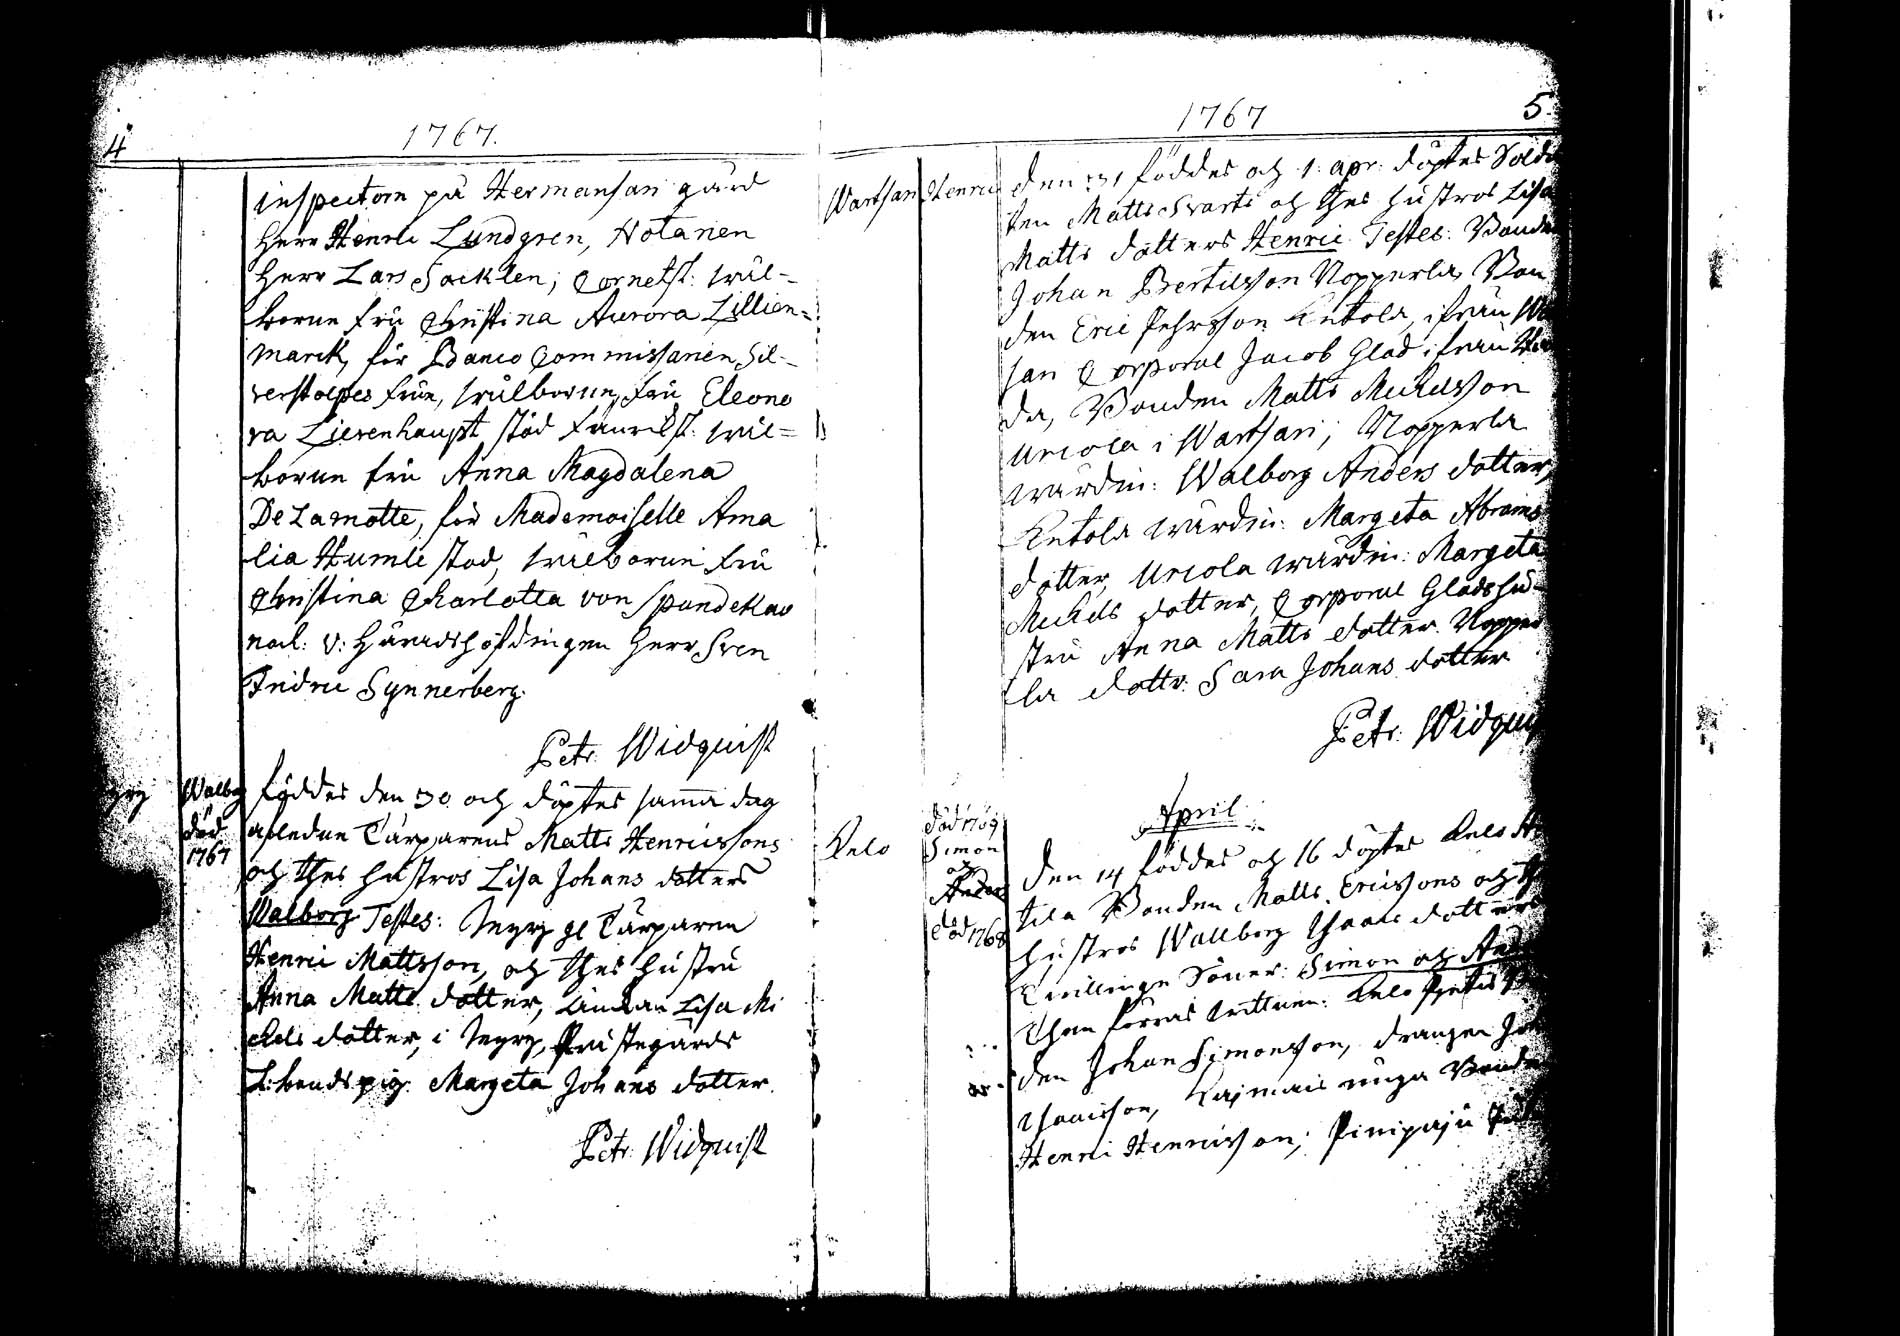 4
1767.
inspectorn på Hermansari gård
herr Henric Lundgren, Notarien
herr Lars Sacklen, Cornetsk: wäl-
borne fru Christina Aurora Lillien=
marck, för Banco Commissarien Sil-
verstolpes fru, wälborne fru Eleono
ra Liewenhaupt stod wäl=
borne fru Anna Magdalena
De Lamotte, för Mademoiselle Ama
lia Humle stod, wälborne fru
Christina Charlotta von Spandekau
och v: häradshöfdingen herr Sven
Fredric Synnerberg.
Petr. Widquist
Walbg
död
1767
föddes den 30 och döptes samma dag
Torparens Matts Henricssons
och thes hustros Lisa Johans dotters
Walborg Testes: gl Torparen
Henric Mattsson, och thes hustru
Anna Matts dotter, Lisa Mi
chels dotter, i Prästegårds
pig. Margeta Johans dotter.
Petr. Widquist
1767
5
Wartsari Henric
den 31 föddes och 1. apr. döptes Solda
ten Matts Svarts och thes hustros Lisa
Matts dotters Henric Testes: Bonden
Johan Bertilsson Nopperla, Bon
den Eric Pehrsson Ketola, ifrån
sari Corporal Jacob Glad ifrån
da, Bonden Matts Michelsson
Uriola i Wartsari, Nopperla
wärdin: Walborg Anders dotter,
Ketola wärdin: Margeta Abrams
dotter, Uriola wärdin: Margeta
Michels dotter, Corporal Glads hu-
stru Anna Matts dotter. Nopper
la dottr: Sara Johans dotter
Petr. Widquist
April
Kelo
död 1769
Simon
och
Anders
död 1768
Den 14 föddes och 16 döptes Kelo
tila Bonden Matts Ericssons och
hustros Wallborg Isaacs dotters
Twillinge Söner: Simon och And
Then förras wittnen: Kelo
den Johan Simonsson, drängen
Isaacsson, unga Bonden
Henric Henricsson,